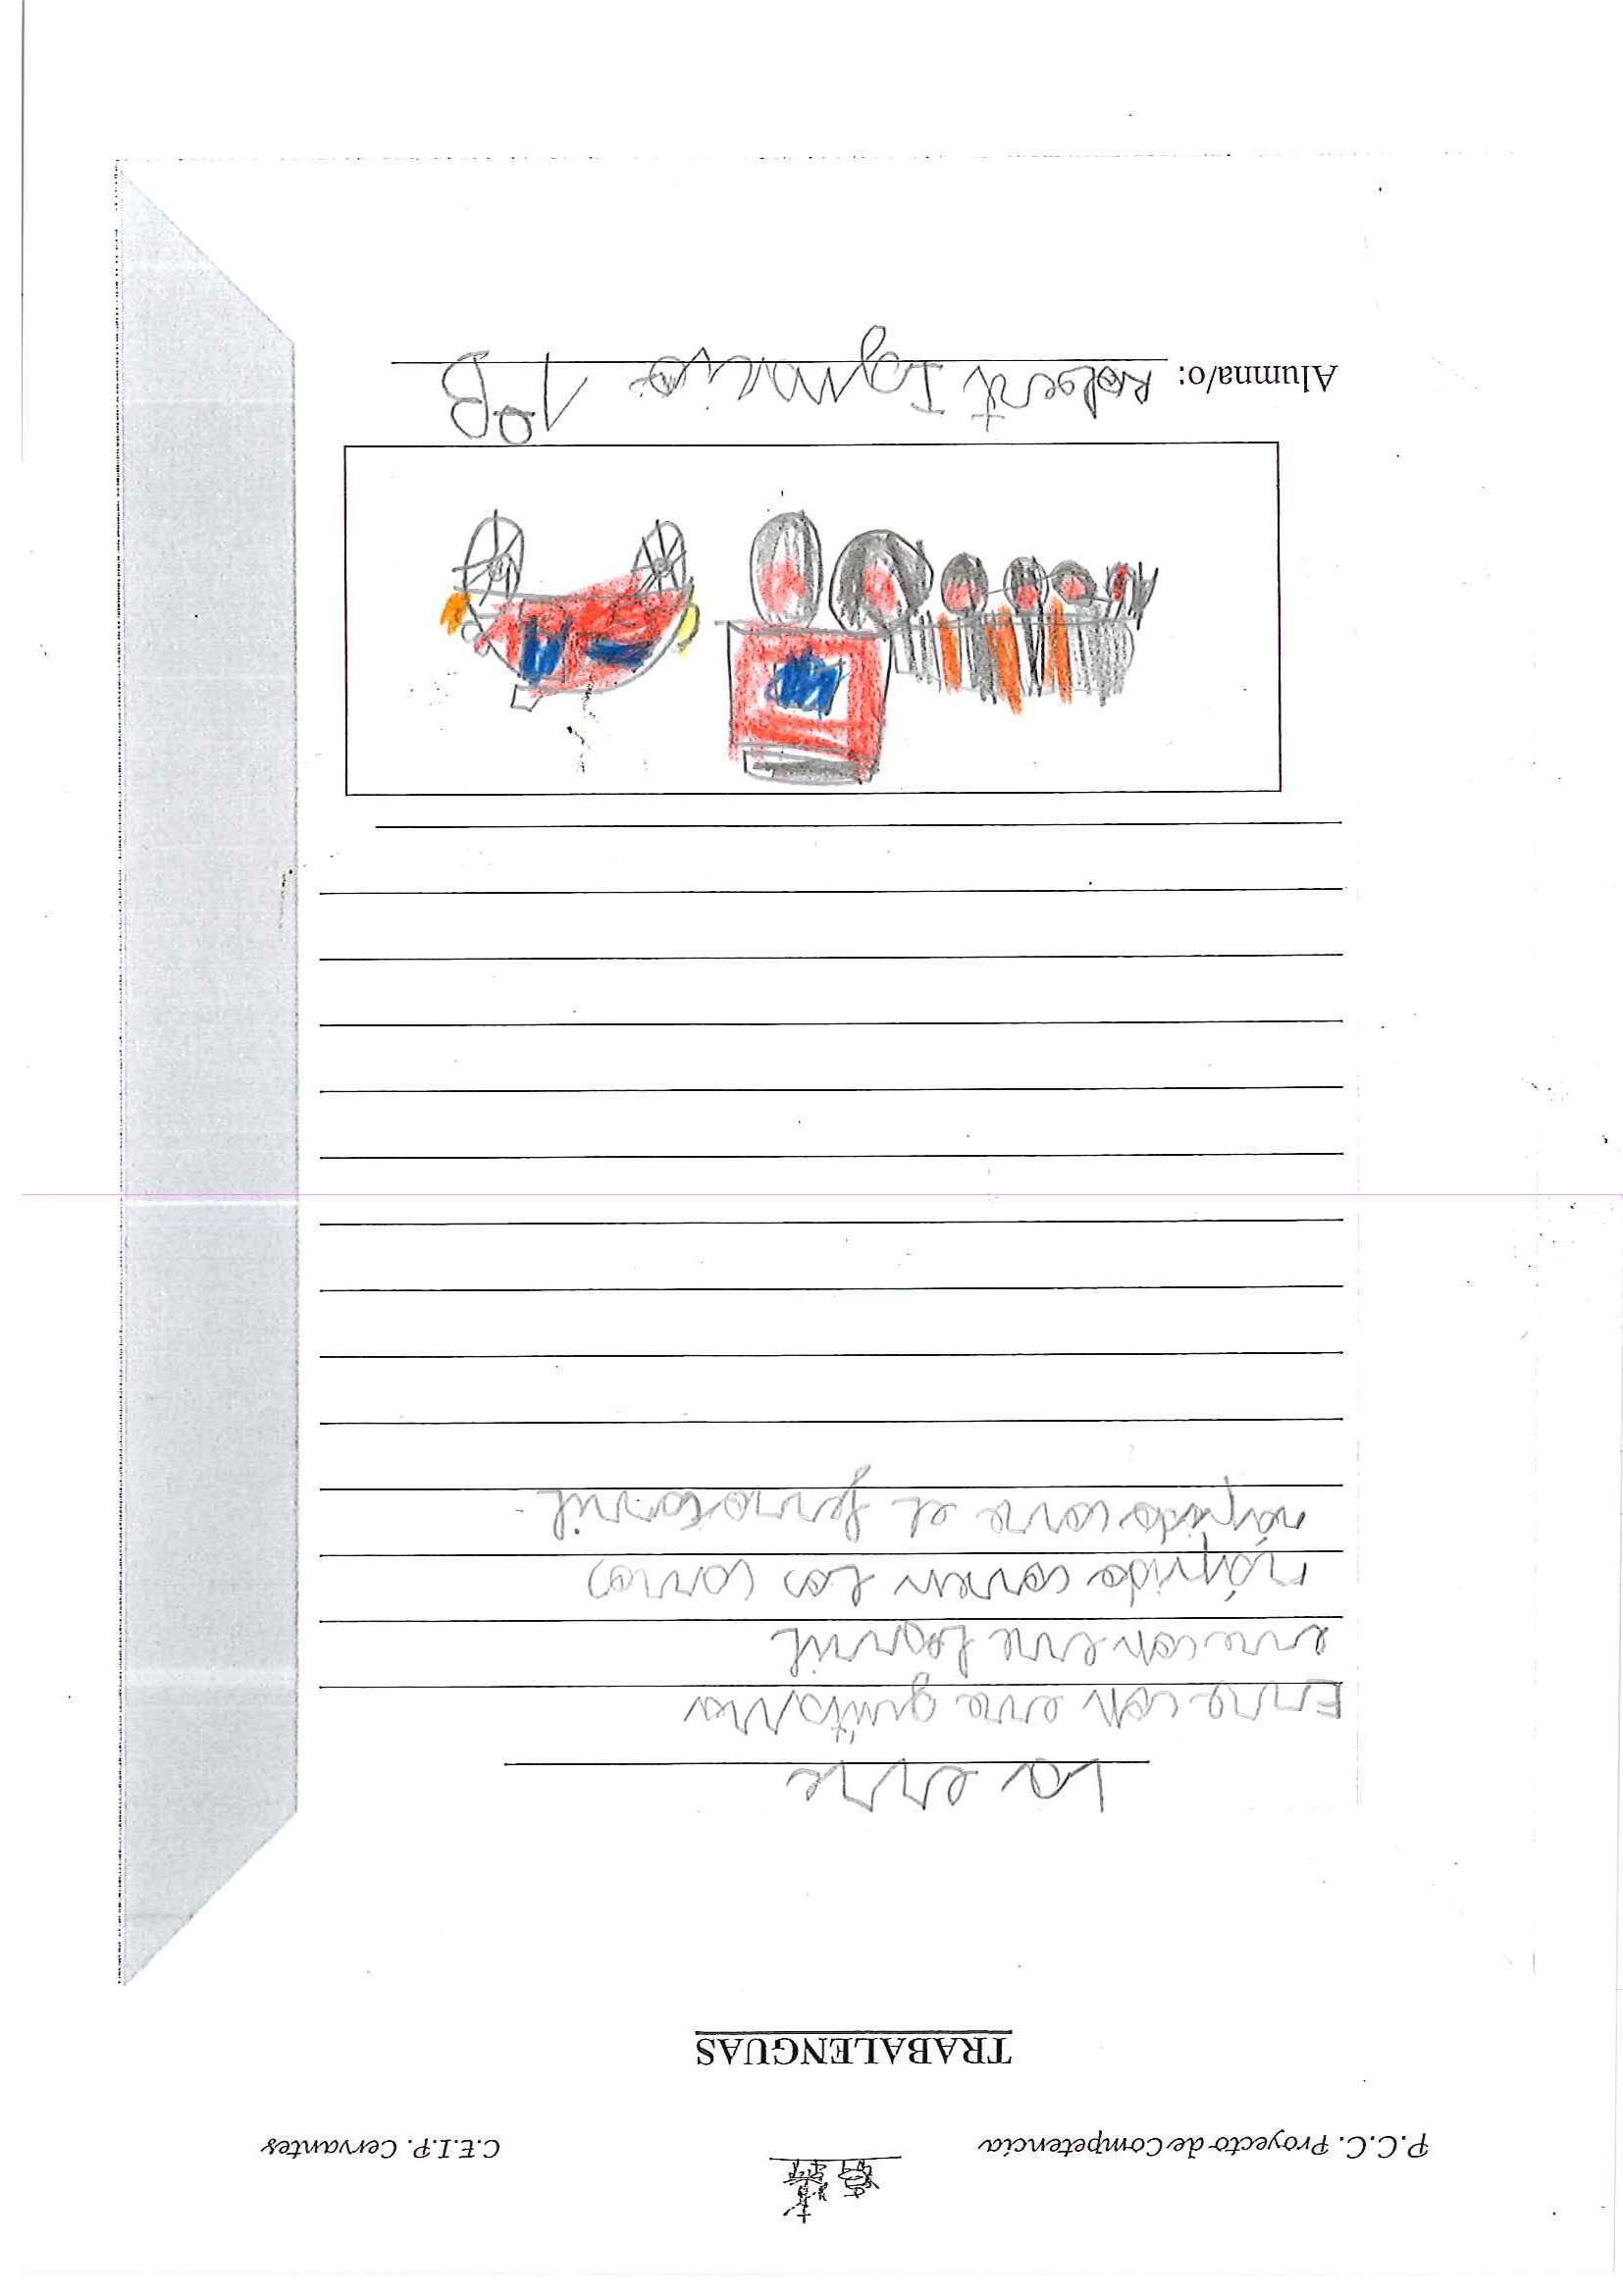 P.C.C. Proyecto de Competencia
C.E.I.P. Cervantes
TRABALENGUAS
La erre
Erre con erre guitarra
erre con erre barril
rápido corren los carros
rápido corre el ferrocarril.
Alumna/o: Robert Ignacio 1ºB